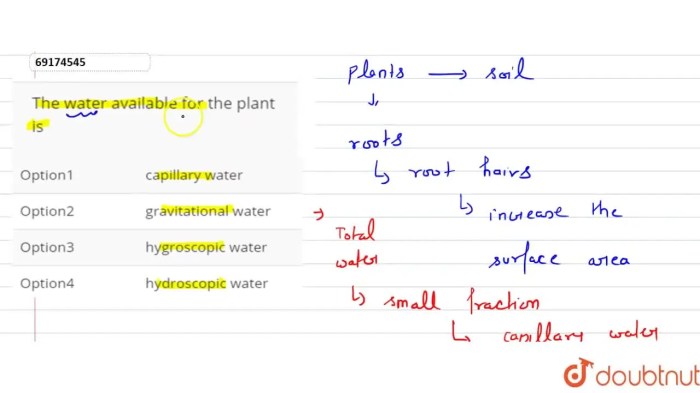 69174545
The water available for the plant
is
Option1 capillary water
Option2 gravitational water
Option3 hygroscopic water
Option4 hydroscopic water
plants → soil
↓
roots
↳ root hairs
↳ increase the
surface area
→ Total
water
↳ small fraction
↳ capillary water
doubtnut